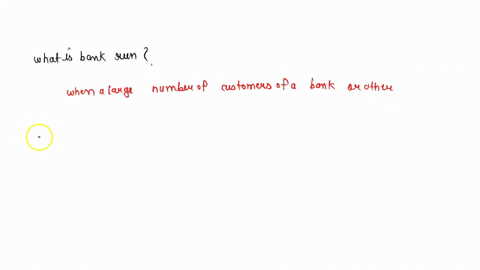 what is bank run?
when a large number of customers of a bank or other